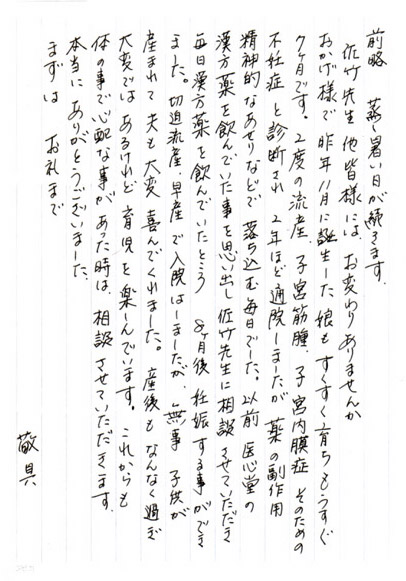 前略 蒸し暑い日が続きます。
佐竹先生他皆様には、お変わりありませんか
おかげ様で昨年11月に誕生した娘もすくすく育ちもうすぐ
7ヶ月です。2度の流産、子宮筋腫、子宮内膜症、そのための
不妊症と診断され、2年ほど通院しましたが、薬の副作用
精神的なあせりなどで落ち込む毎日でした。以前医心堂の
漢方薬を飲んでいた事を思い出し佐竹先生に相談させていただき
毎日漢方薬を飲んでいたところ 8ヶ月後妊娠する事ができ
ました。切迫流産、早産で入院はしましたが、無事子供が
産まれて夫も大変喜んでくれました。産後もなんなく過ぎ
大変ではあるけれど育児を楽しんでいます。これからも
体の事で心配な事があった時は、相談させていただきます。
本当にありがとうございました。
まずは お礼まで
敬具